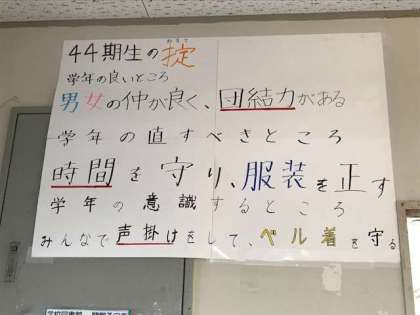 44期生の掟
おきて
学年の良いところ
男女の仲が良く、団結力がある
学年の直すべきところ
時間を守り、服装を正す
学年の意識するところ
みんなで声掛けをして、ベル着を守る